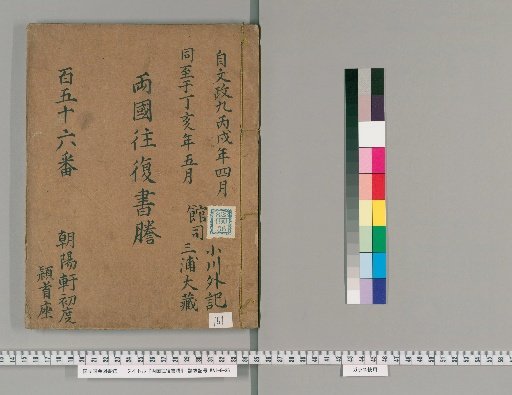 自文政九丙戌年四月
同至于丁亥年五月
館司
小川外記
三浦大藏
両國往復書謄
百五十六番
朝陽軒初度
頴首座